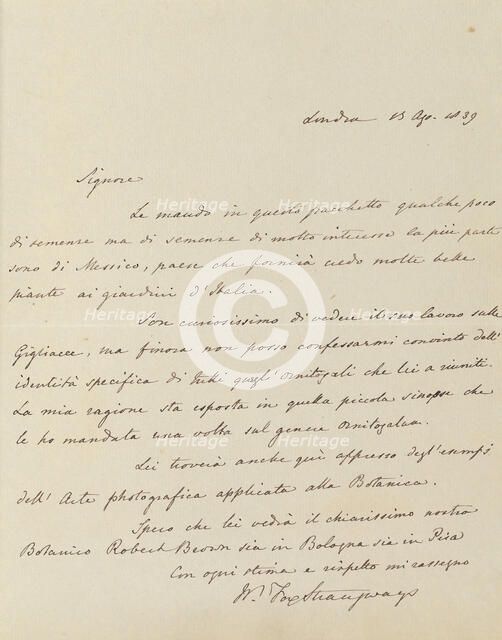 Londra 15 Ago. 1839
Signore
Le mando in questo pacchetto qualche poco
di semenze ma di semenze di molto interesse la più parte
sono di Messico, paese che fornirà credo molte belle
piante ai giardini d'Italia.
Son curiosissimo di vedere il suo lavoro sulle
Gigliacee, ma finora non posso confessarmi convinto dell'
identità specifica di tutti quegl'ornitogali che lei a riuniti.
La mia ragione sta esposta in quella piccola sinopse che
le ho mandata una volta sul genere Ornitogalum.
Lei troverà anche quì appresso degl'esempj
dell'Arte photografica applicata alla Botanica.
Spero che lei vedrà il chiarissimo nostro
Botanico Robert Brown sia in Bologna sia in Pisa
Con ogni stima e rispetto mi rassegno
Wm. Fox Strangways
Heritage
Heritage
Heritage
Heritage
Heritage
Heritage
Heritage
©